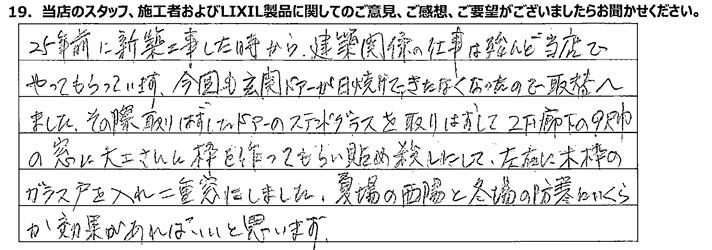 19. 当店のスタッフ、施工者およびLIXIL製品に関してのご意見、ご感想、ご要望がございましたらお聞かせください。
25年前に新築工事した時から、建築関係の仕事は殆んど当店で
やってもらっています。今回も玄関ドアーが日焼けできたなくなったので取替へ
ました。その際取りはずしたドアーのステンドグラスを取りはずして2F廊下の9尺巾
の窓に大工さんに枠を作ってもらい貼め殺しにして、左右に木枠の
ガラス戸を入れ二重窓にしました。夏場の西陽と冬場の防寒にいくら
か効果があればいいと思います。